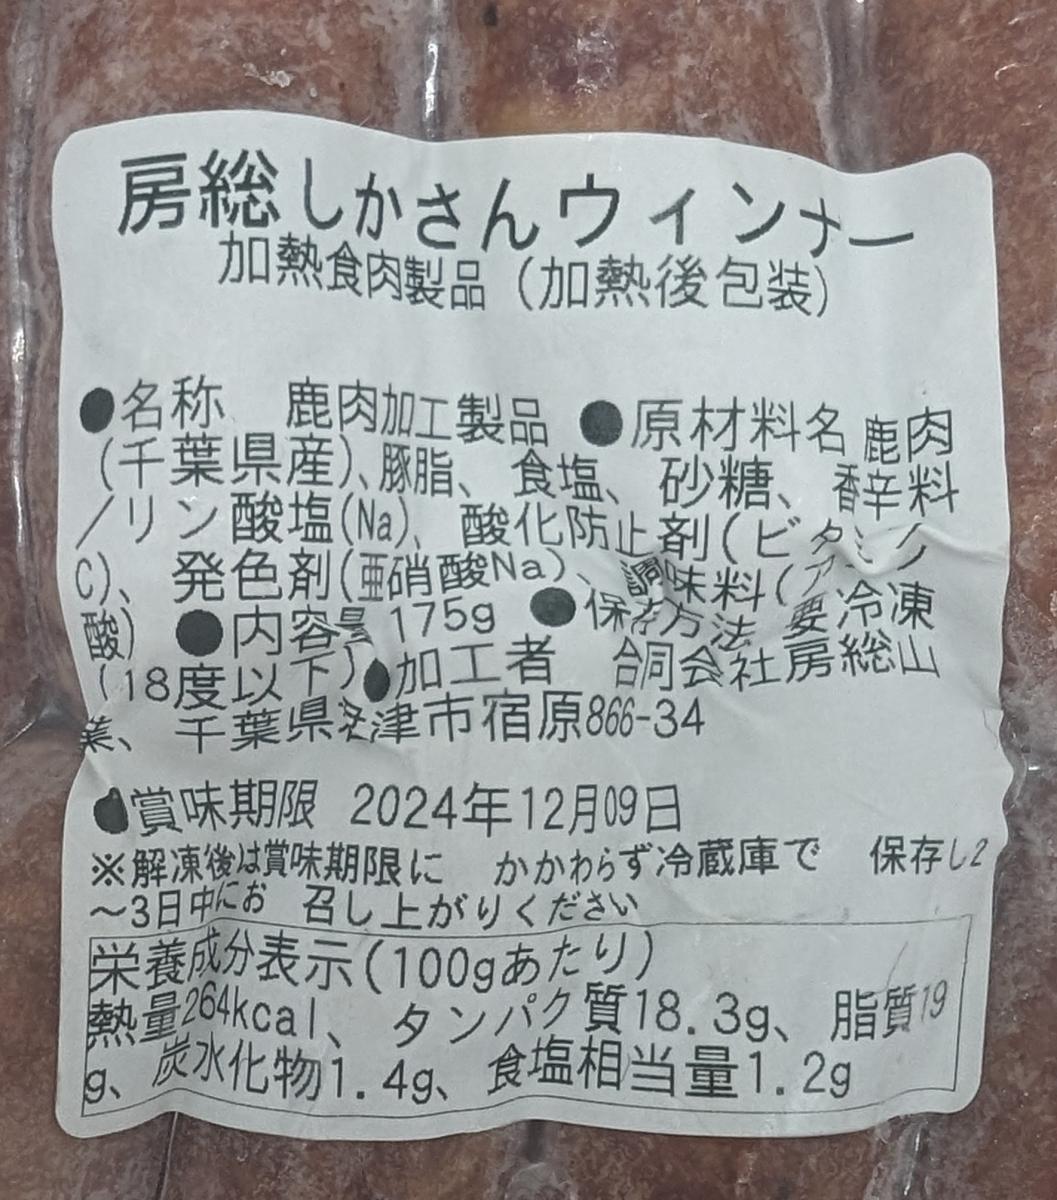 房総しかさんウィンナー
加熱食肉製品（加熱後包装）
●名称　鹿肉加工製品　●原材料名 鹿肉
（千葉県産）、豚脂、食塩、砂糖、香辛料
／リン酸塩(Na)、酸化防止剤(ビタミン
C)、発色剤(亜硝酸Na)、調味料(アミノ
酸)　●内容量 175g　●保存方法　要冷凍
（18度以下）●加工者　合同会社房総山
業、千葉県君津市宿原866-34
●賞味期限　2024年12月09日
※解凍後は賞味期限に　かかわらず冷蔵庫で　保存し2
～3日中にお　召し上がりください
栄養成分表示(100gあたり)
熱量264kcal、タンパク質18.3g、脂質19
g、炭水化物1.4g、食塩相当量1.2g